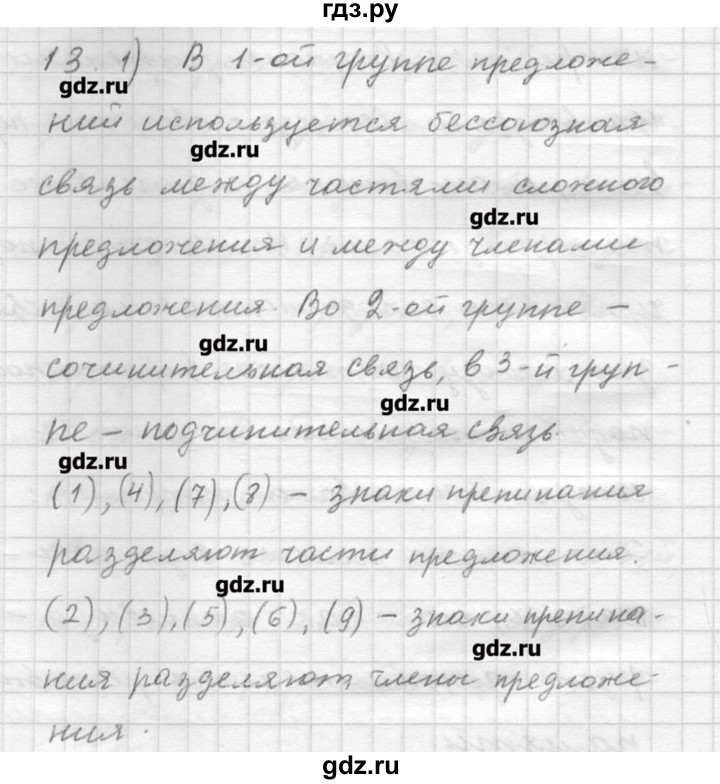 гдз.ру
13. 1) В 1-ой группе предложе-
gdz.ru
ний используется бессоюзная
gdz.ru
связь между частями сложного
gdz.ru
предложения и между членами
предложения. Во 2-ой группе –
gdz.ru
сочинительная связь, в 3-й груп-
gdz.ru
пе – подчинительная связь.
gdz.ru
(1), (4), (7), (8) – знаки препинания
разделяют части предложения.
gdz.ru
(2), (3), (5), (6), (9) – знаки препина-
gdz.ru
ния разделяют члены предложе-
ния.
gdz.ru